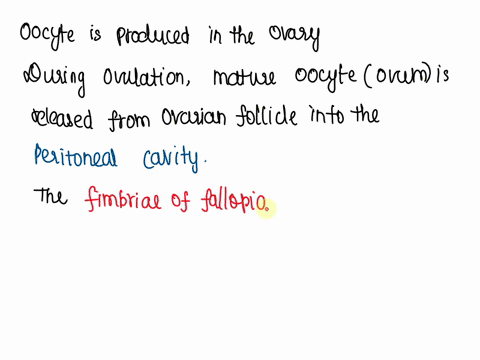 Oocyte is produced in the ovary
During ovulation, mature oocyte (ovum) is
released from ovarian follicle into the
Peritoneal cavity.
The fimbriae of fallopio